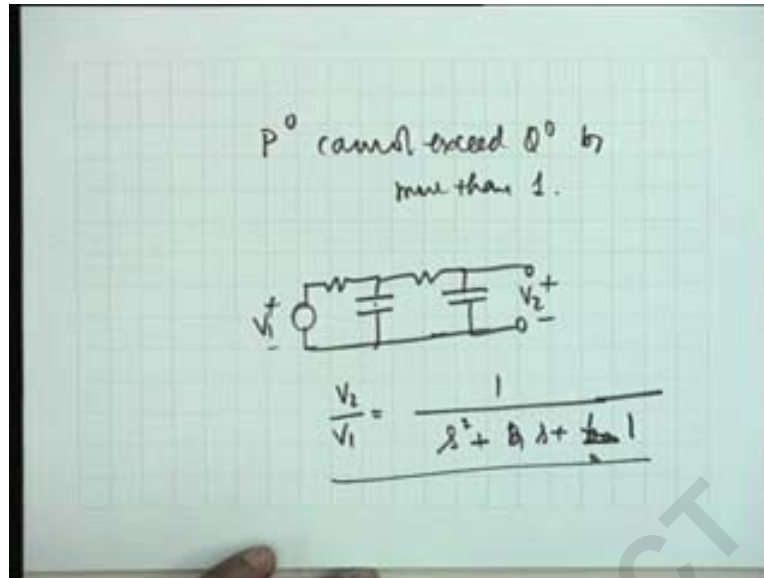 P° cannot exceed Q° by
more than 1.
V₁ + - V₂ + -
V₂/V₁ = 1 / (s² + a₁ s + 1)
CT